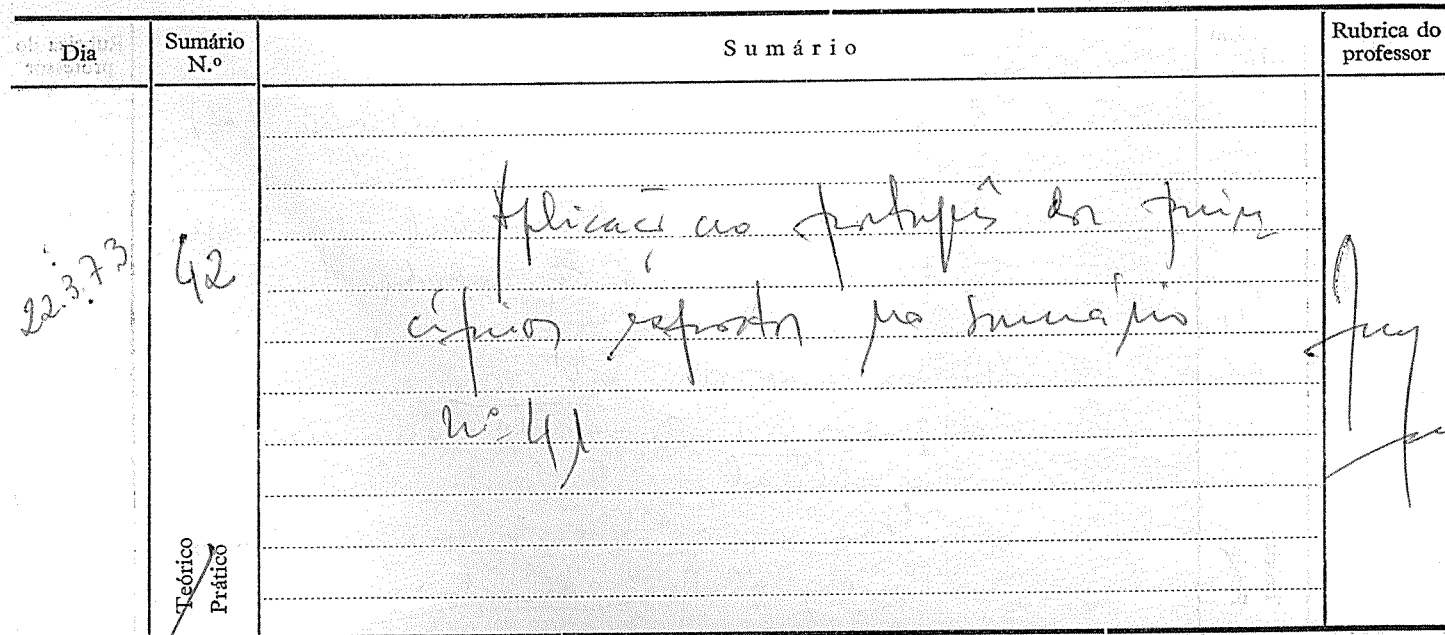 Dia
Sumário
N.º
Sumário
Rubrica do
professor
22.3.73
42
Aplicação ao português dos prin
cípios expostos no sumário
nº 41
Teórico
Prático